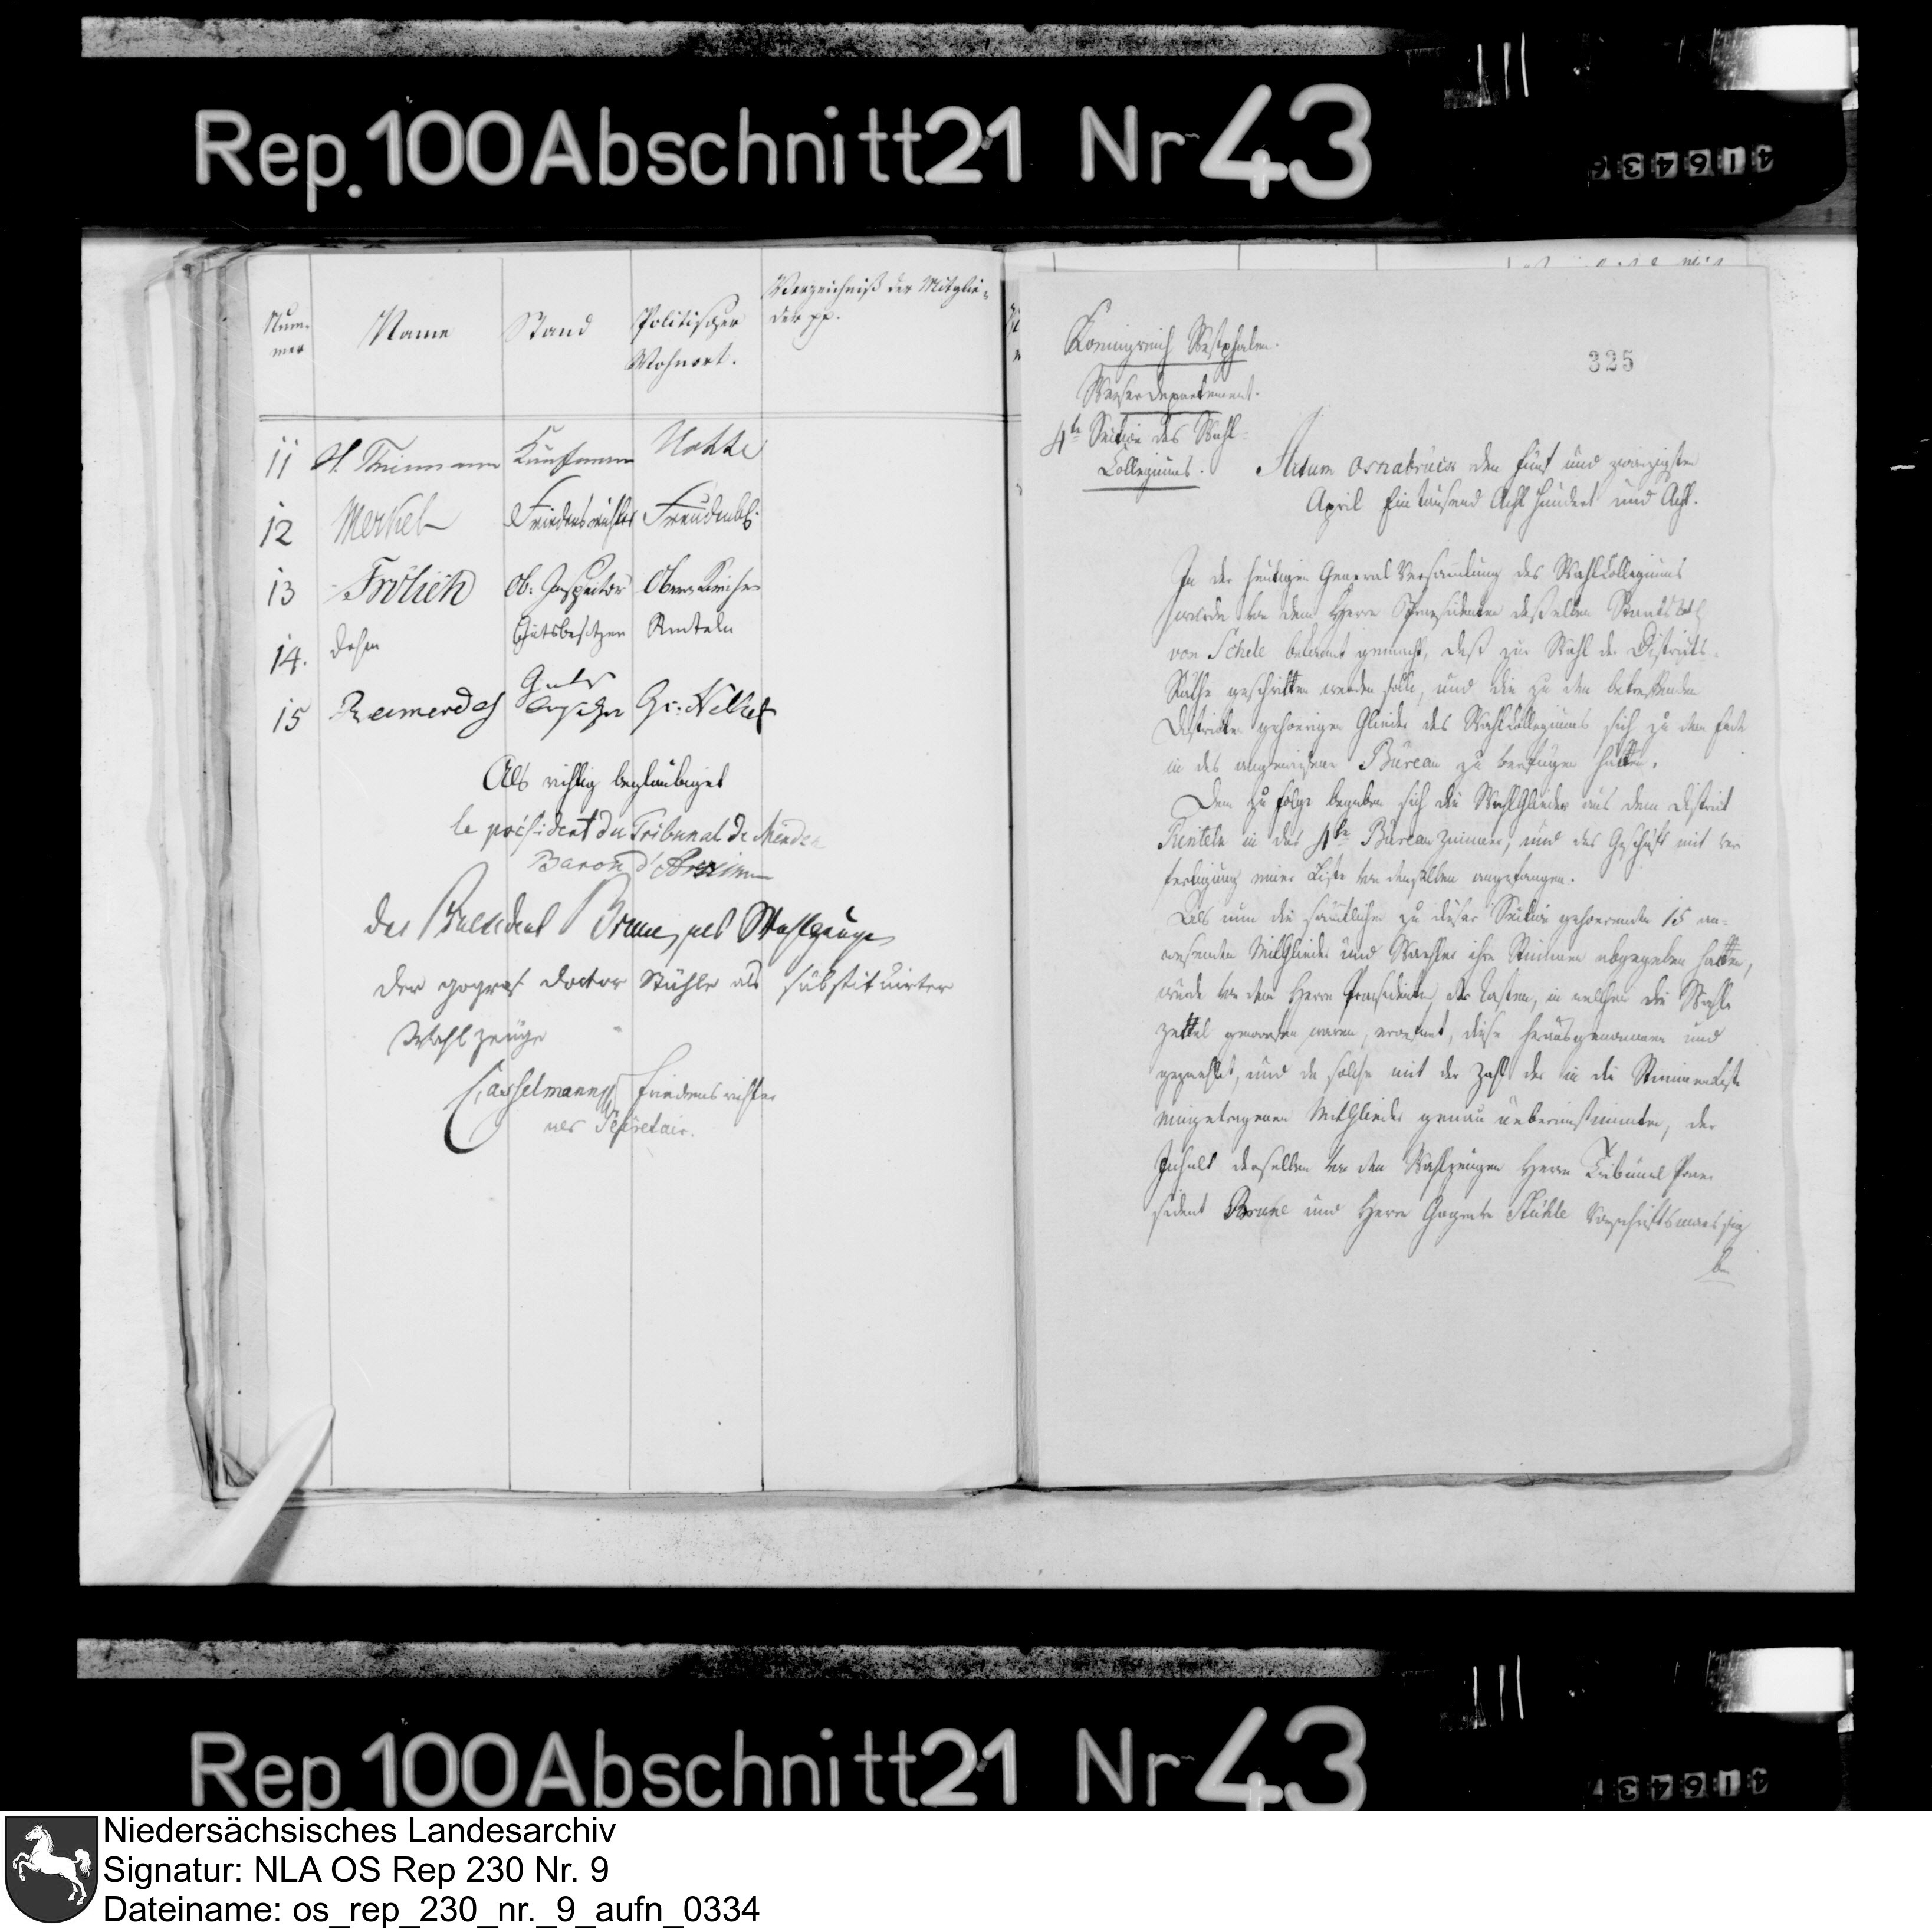 Rep. 100 Abschnitt 21 Nr 43
Num-
mer
Name
Stand
Politischer
Wohnort.
Verzeichniß der Mitglie-
der pp.
11 Kaufmann
12 Merkel Friedensrichter Freudenbg.
13 Frölich Ob: Inspector Obernkirchen
14. Gutsbesitzer Rinteln
15 Reimerdes Guts
besitzer
Als richtig beglaubiget
le président du Tribunal de Minden
Baron
Der Praesident Brune, als Wahlzeuge
Der gograf doctor Stühle als substituirter
Wahlzeuge
Casselmann Friedensrichter
als Secretair.
325
Koenigreich Westphalen.
Weserdepartement.
4te Section des Wahl-
Collegiums.
Actum Osnabrück den fünf und zwanzigsten
April Eintausend Acht Hundert und Acht.
In der heutigen General Versammlung des Wahlcollegiums
wurde von dem Herrn Praesidenten desselben Staatsrath
von Schele bekannt gemacht, daß zur Wahl der Districts-
Räthe geschritten werden solle, und die zu den betreffenden
Districten gehoerigen Glieder des Wahlcollegiums sich zu dem Ende
in das angewiesene Bureau zu verfügen hätten.
Dem zu folge begaben sich die Wahlglieder aus dem District
Rinteln in das 4te Bureau Zimmer, und das Geschäft mit Ver
fertigung einer Liste von denselben angefangen.
Als nun die sämtlichen zu dieser Section gehoerenden 15 an-
wesenden Mitglieder und Waehler ihre Stimmen abgegeben hatten,
wurde von dem Herrn Praesidenten, der Kasten, in welchen die Wahl
zettel geworfen waren, eroefnet, diese herausgenommen und
gezaehlet, und da solche mit der Zahl der in die Stimmenliste
eingetragenen Mitglieder genau uebereinstimmten, der
Inhalt derselben von den Wahlzeugen Herrn Tribunal Prae
sident Brune und Herrn Gografen Stühle vorschriftsmaessig
Rep. 100 Abschnitt 21 Nr 43
Niedersächsisches Landesarchiv
Signatur: NLA OS Rep 230 Nr. 9
Dateiname: os_rep_230_nr._9_aufn_0334